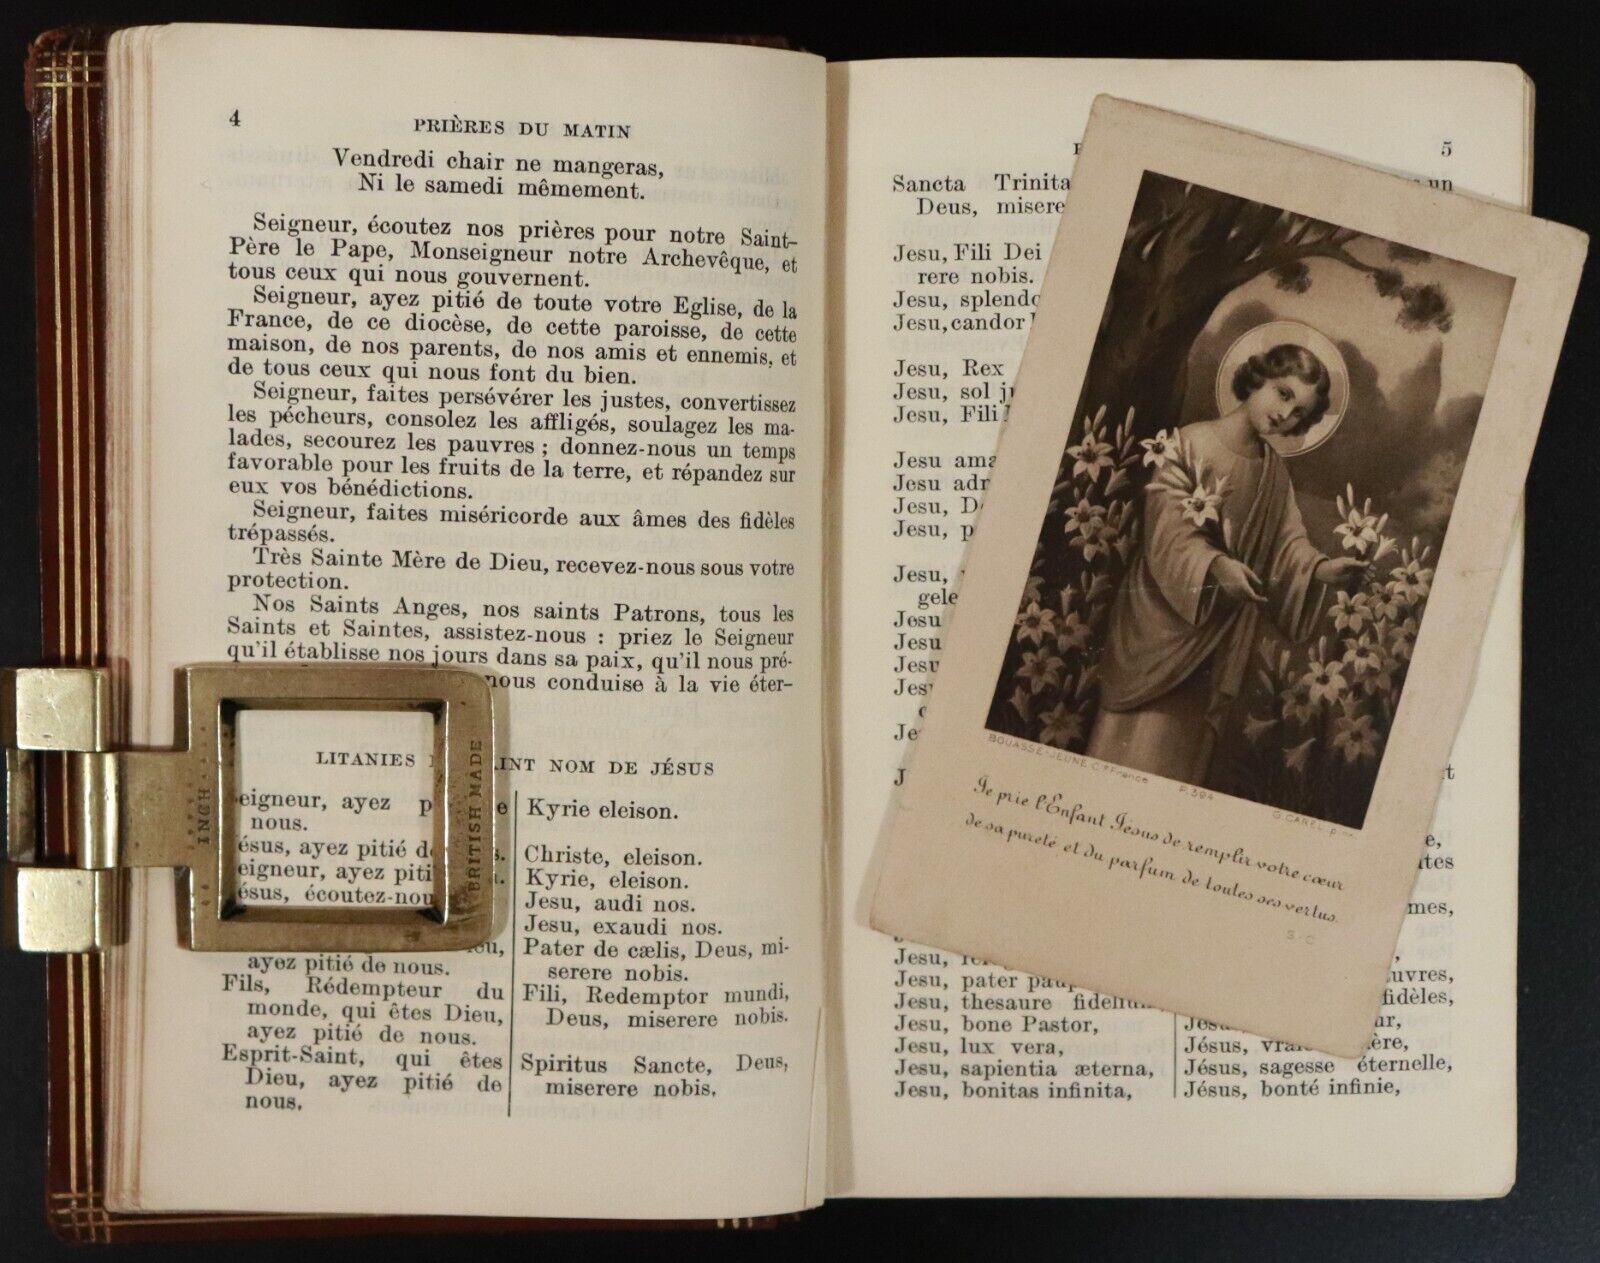 4
PRIÈRES DU MATIN
Vendredi chair ne mangeras,
Ni le samedi mêmement.
Seigneur, écoutez nos prières pour notre Saint-
Père le Pape, Monseigneur notre Archevêque, et
tous ceux qui nous gouvernent.
Seigneur, ayez pitié de toute votre Eglise, de la
France, de ce diocèse, de cette paroisse, de cette
maison, de nos parents, de nos amis et ennemis, et
de tous ceux qui nous font du bien.
Seigneur, faites persévérer les justes, convertissez
les pécheurs, consolez les affligés, soulagez les ma-
lades, secourez les pauvres ; donnez-nous un temps
favorable pour les fruits de la terre, et répandez sur
eux vos bénédictions.
Seigneur, faites miséricorde aux âmes des fidèles
trépassés.
Très Sainte Mère de Dieu, recevez-nous sous votre
protection.
Nos Saints Anges, nos saints Patrons, tous les
Saints et Saintes, assistez-nous : priez le Seigneur
qu'il établisse nos jours dans sa paix, qu'il nous pré-
nous conduise à la vie éter-
LITANIES NOM DE JÉSUS
eigneur, ayez
nous.
ésus, ayez pitié
eigneur, ayez
ésus, écoutez-nou
ayez pitié de nous.
Fils, Rédempteur du
monde, qui êtes Dieu,
ayez pitié de nous.
Esprit-Saint, qui êtes
Dieu, ayez pitié de
nous.
Kyrie eleison.
Christe, eleison.
Kyrie, eleison.
Jesu, audi nos.
Jesu, exaudi nos.
Pater de cælis, Deus, mi-
serere nobis.
Fili, Redemptor mundi,
Deus, miserere nobis.
Spiritus Sancte, Deus,
miserere nobis.
INCH
BRITISH MADE
5
Sancta Trinita
Deus, misere
Jesu, Fili Dei
rere nobis.
Jesu, splendo
Jesu, candor
Jesu, Rex
Jesu, sol
Jesu, Fili
Jesu ama
Jesu adr
Jesu,
Jesu, p
Jesu,
gele
Jesu
Jesu
Jesu,
Jesu, pater
Jesu, thesaure
Jesu, bone Pastor,
Jesu, lux vera,
Jesu, sapientia æterna,
Jesu, bonitas infinita,
un
mes,
uvres,
fidèles,
ur,
ère,
Jésus, sagesse éternelle,
Jésus, bonté infinie,
BOUASSE-JEUNE Cie France
P. 394
G. CAREL
Je prie l'Enfant Jésus de remplir votre cœur
de sa pureté et du parfum de toutes ses vertus.
S-C